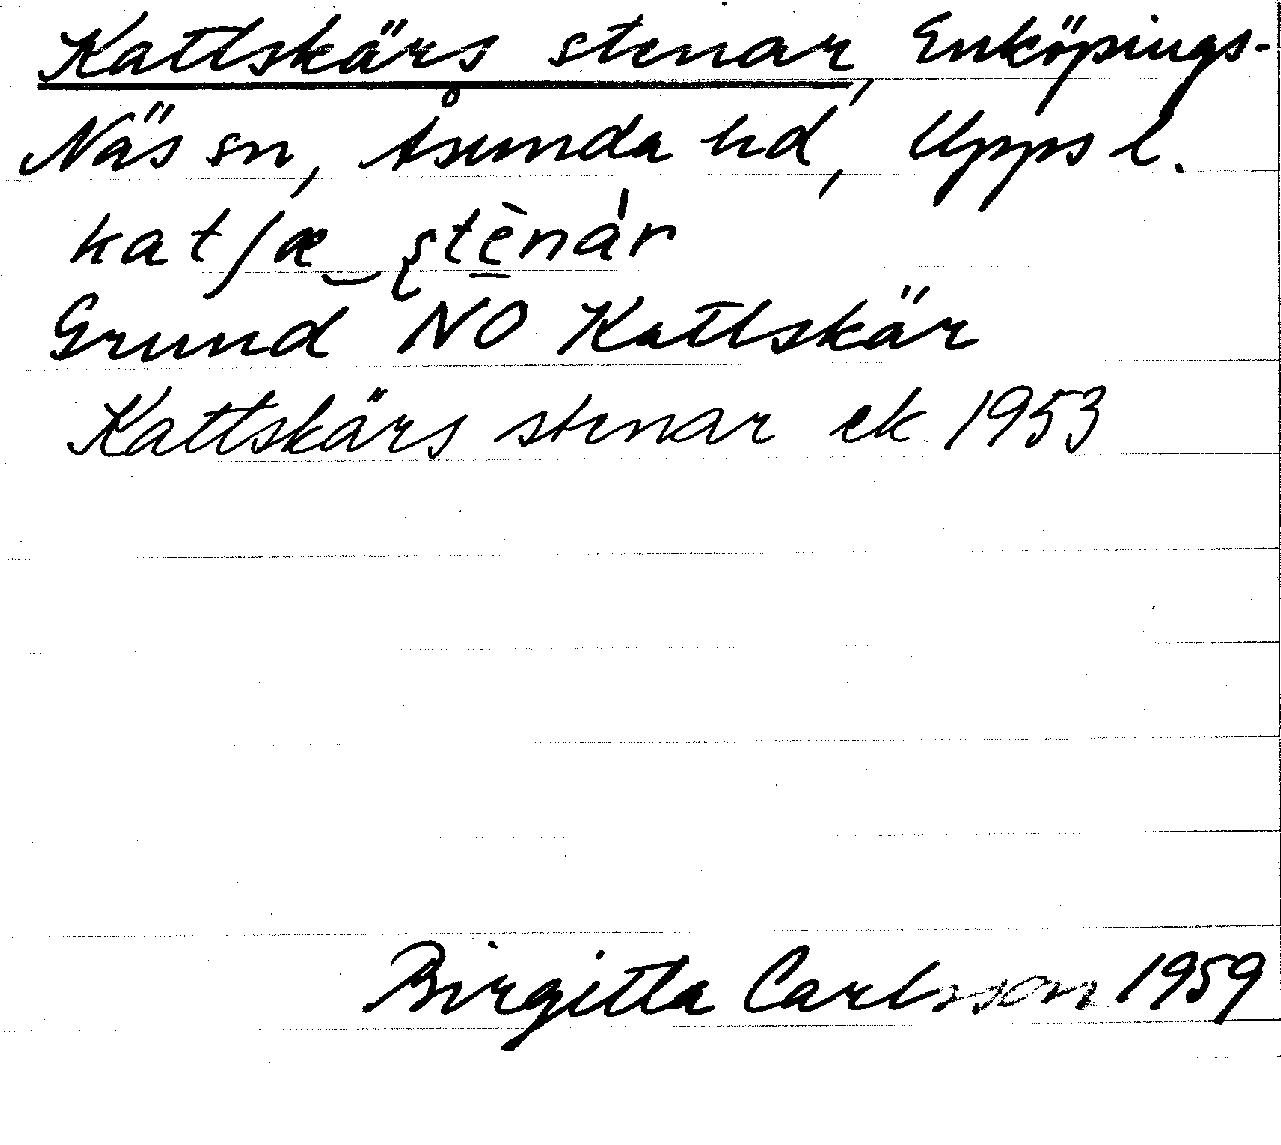 Kattskärs stenar, Enköpings-
Näs sn, Åsunda hd, Upps l.
katʃæ‿ʂtènár
Grund NO Kattskär
Kattskärs stenar ek 1953
Birgitta Carlsson 1959